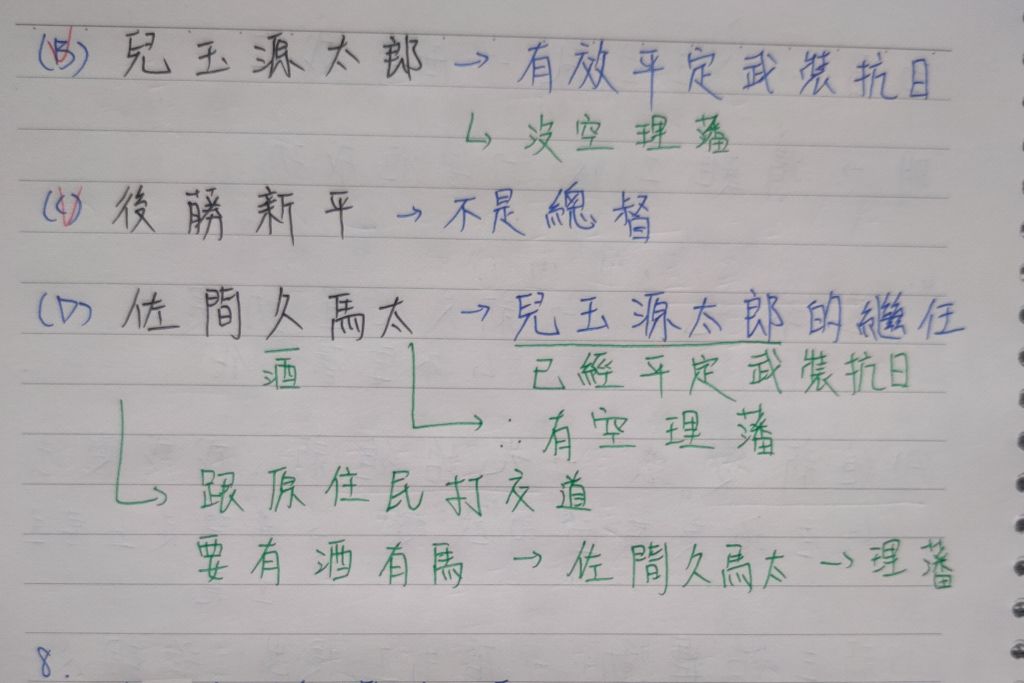 (B) 兒玉源太郎 → 有效平定武裝抗日
↳ 沒空理藩
(C) 後藤新平 → 不是總督
(D) 佐間久馬太 → 兒玉源太郎的繼任
酒 已經平定武裝抗日
→ ∴有空理藩
↳ 跟原住民打交道
要有酒有馬 → 佐間久馬太 → 理藩
8.